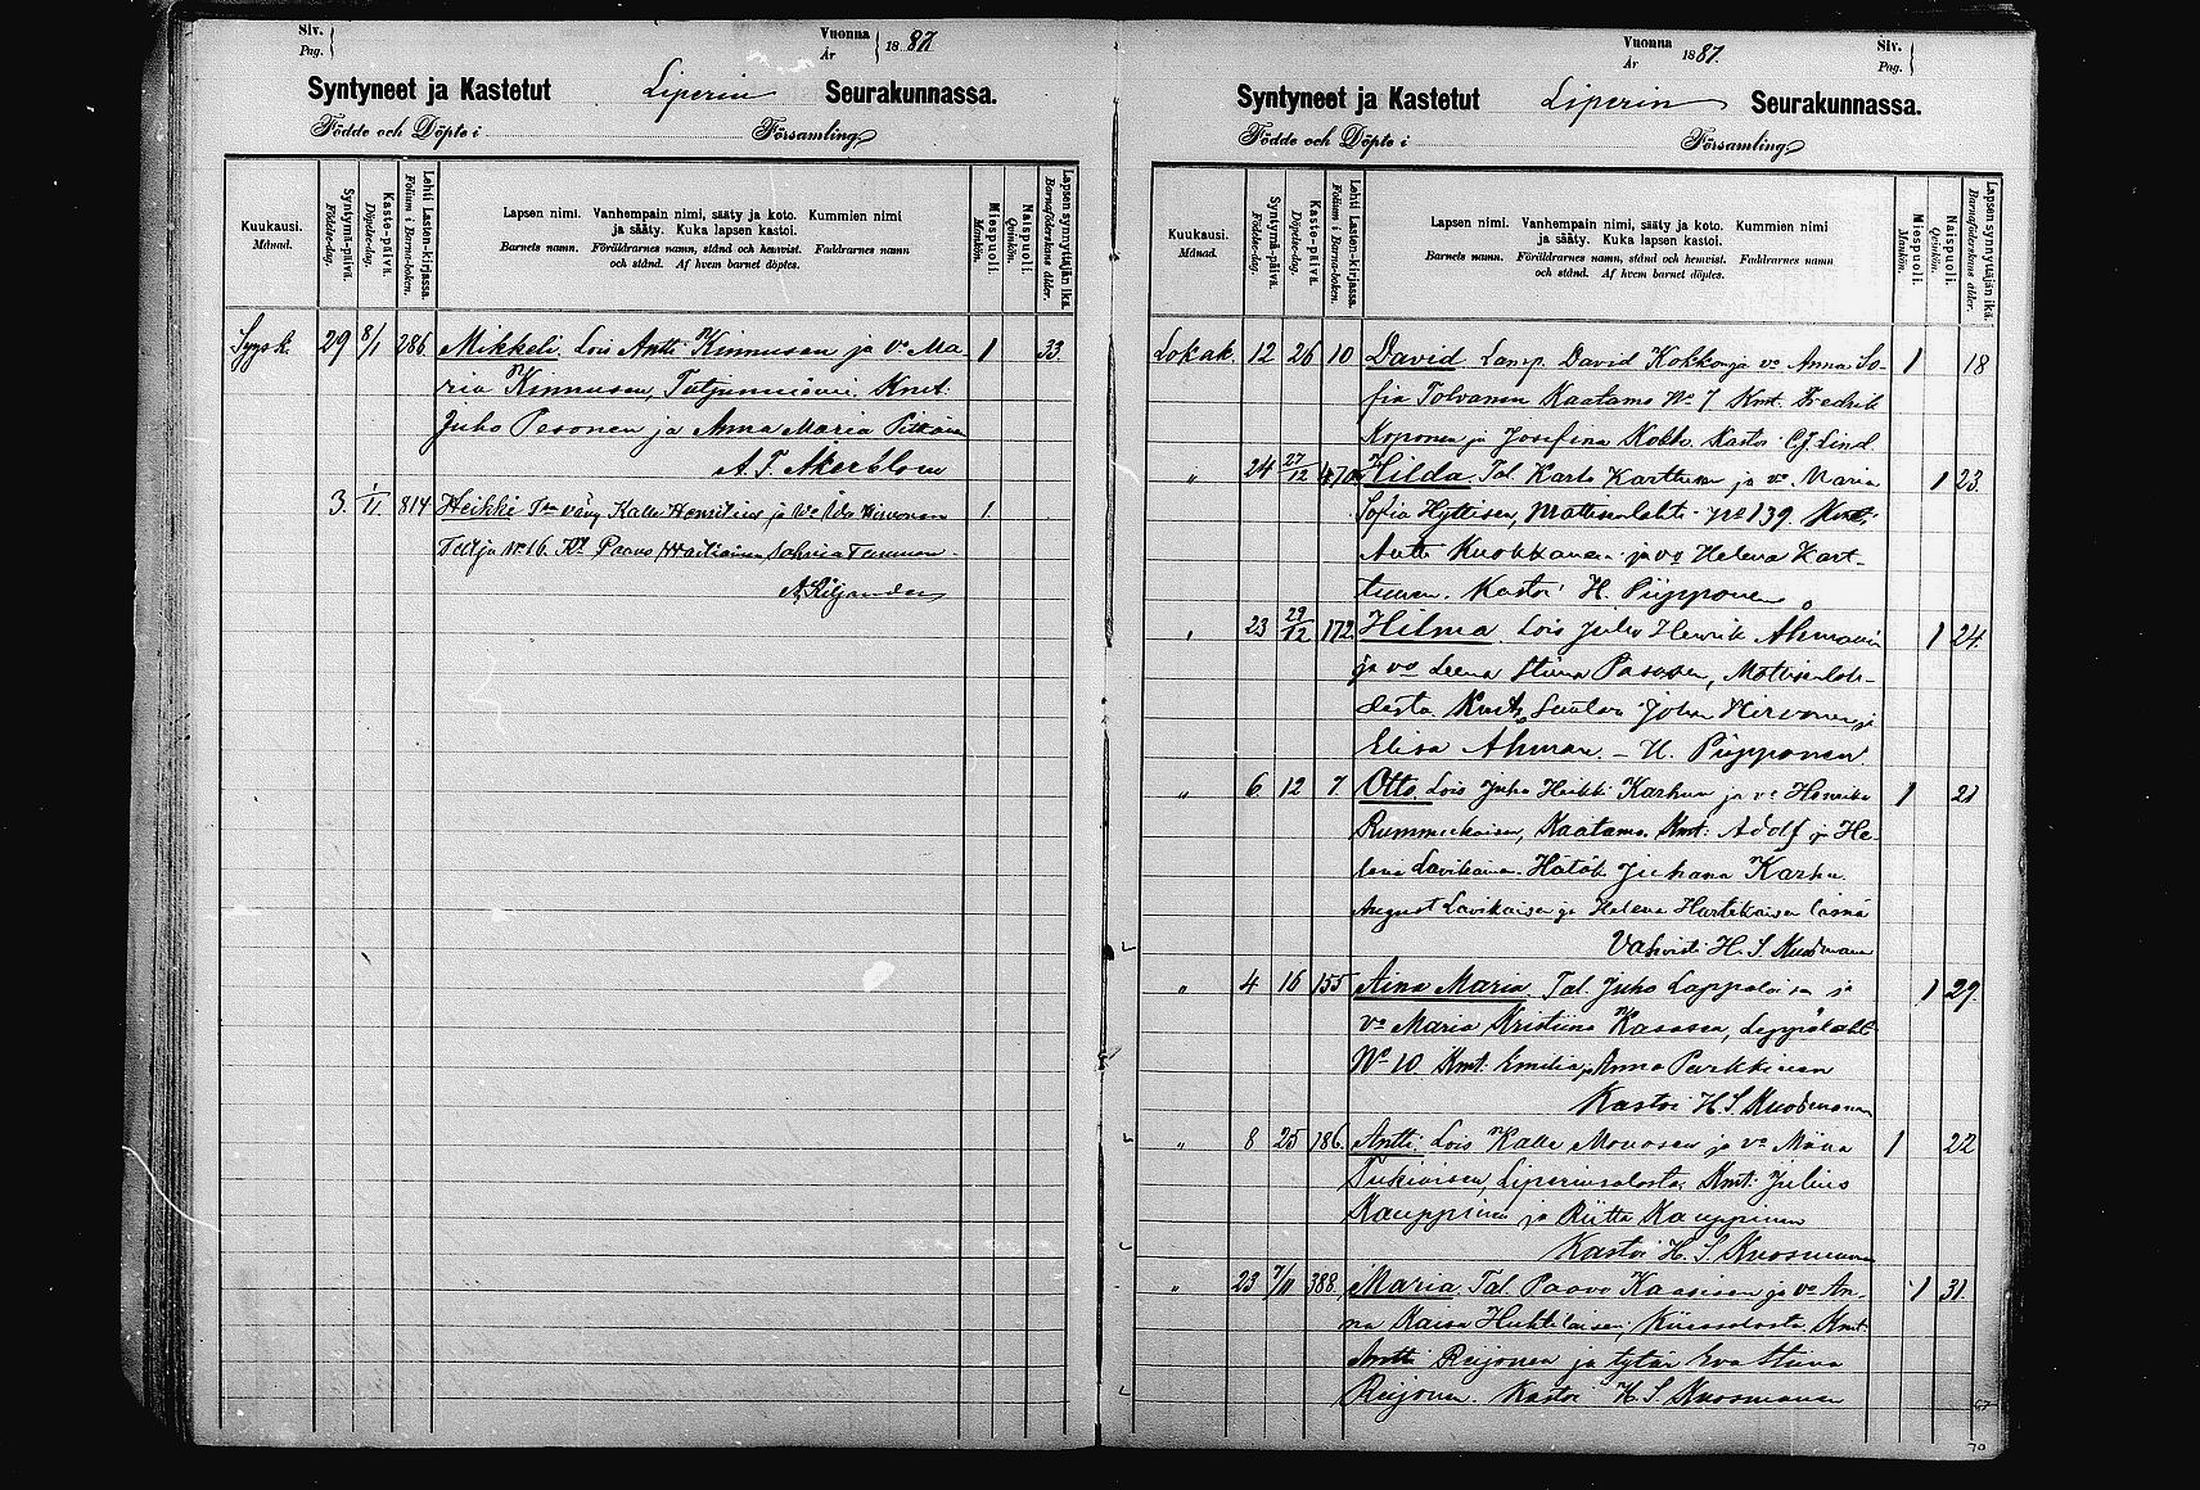 Siv.
Pag.
Vuonna
År
1887
Syntyneet ja Kastetut Liperin Seurakunnassa.
Födde och Döpte i Församling
Kuukausi.
Månad.
Syntymä-päivä.
Födelse-dag.
Kaste-päivä.
Döpelse-dag.
Lehti Lasten-kirjassa.
Folium i Barna-boken.
Lapsen nimi. Vanhempain nimi, sääty ja koto. Kummien nimi
ja sääty. Kuka lapsen kastoi.
Barnets namn. Föräldrarnes namn, stånd och hemvist. Faddrarnes namn
och stånd. Af hvem barnet döptes.
Miespuoli.
Mankön.
Naispuoli.
Qvinkön.
Lapsen synnyttäjän ikä.
Barnaföderskans ålder.
Syysk. 29 8/1 286 Mikkeli. Lois Antti Kinnusen ja vo Ma 1 33.
ria Kinnusen, Kmt:
Juho Pesonen ja Anna Maria Pitkänen
A. F. Åkerblom
3. 1/11. 814 Heikki vävy Kalle ja Vo Ida Hirvonen 1.
No 16. Paavo
A. Kiljander
Vuonna
År
1887.
Siv.
Pag.
Syntyneet ja Kastetut Liperin Seurakunnassa.
Födde och Döpte i Församling
Kuukausi.
Månad.
Syntymä-päivä.
Födelse-dag.
Kaste-päivä.
Döpelse-dag.
Lehti Lasten-kirjassa.
Folium i Barna-boken.
Lapsen nimi. Vanhempain nimi, sääty ja koto. Kummien nimi
ja sääty. Kuka lapsen kastoi.
Barnets namn. Föräldrarnes namn, stånd och hemvist. Faddrarnes namn
och stånd. Af hvem barnet döptes.
Miespuoli.
Mankön.
Naispuoli.
Qvinkön.
Lapsen synnyttäjän ikä.
Barnaföderskans ålder.
Lokak. 12 26 10 David. Lamp. David Kokkon ja vo Anna So- 1 18
fia Tolvanen Kaatamo No 7. Kmt. Fredrik
Koponen ja Josefina Kokko. Kastoi C.J. Lind.
" 24 27/12 470 Hilda. Tal. Karlo Karttusen ja vo Maria 1 23.
Sofia Hyttisen, Mattisenlahti No 139. Kmt:
Antti Kuokkanen ja vo Helena Kart-
tunen. Kastoi H. Piipponen
" 23 29/12 172. Hilma. Lois Juho Henrik Ahmanin 1 24.
ja vo Leena Stiina Pasasen, Mattisenlah-
desta. Kmt: Johan Hirvonen ja
Elisa Ahman. - H. Piipponen.
" 6. 12 7. Otto. Lois Juho Heikki Karhun ja vo Henrika 1 21
Rummukaisen, Kaatamo. Kmt: Adolf ja He-
lena Lavikainen. Hätäk. Juhana Karhu.
August Lavikaisen ja Helena Hartikaisen läsnä
Vahvisti H. S. Kuosmanen
" 4 16 155 Aina Maria. Tal. Juho Lappalaisen ja 1 29.
vo Maria Kristiina Kasasen, Leppälahti
No 10. Kmt: Emilia ja Anna Parkkinen
Kastoi H. S. Kuosmanen
" 8 25 186. Antti. Lois Kalle Monosen ja vo 1 22
Tukiaisen, Liperinsalosta, Kmt: Julius
Kauppinen ja Riitta Kauppinen
Kastoi H. S. Kuosmanen
" 23 7/11 388. Maria. Tal. Paavo Kaasisen ja vo An- 1 31.
na Kaisa Huhtilaisen, Kiinsalosta. Kmt:
Antti Reijonen ja tytär Eva Stiina
Reijonen. Kastoi H. S. Kuosmanen
70